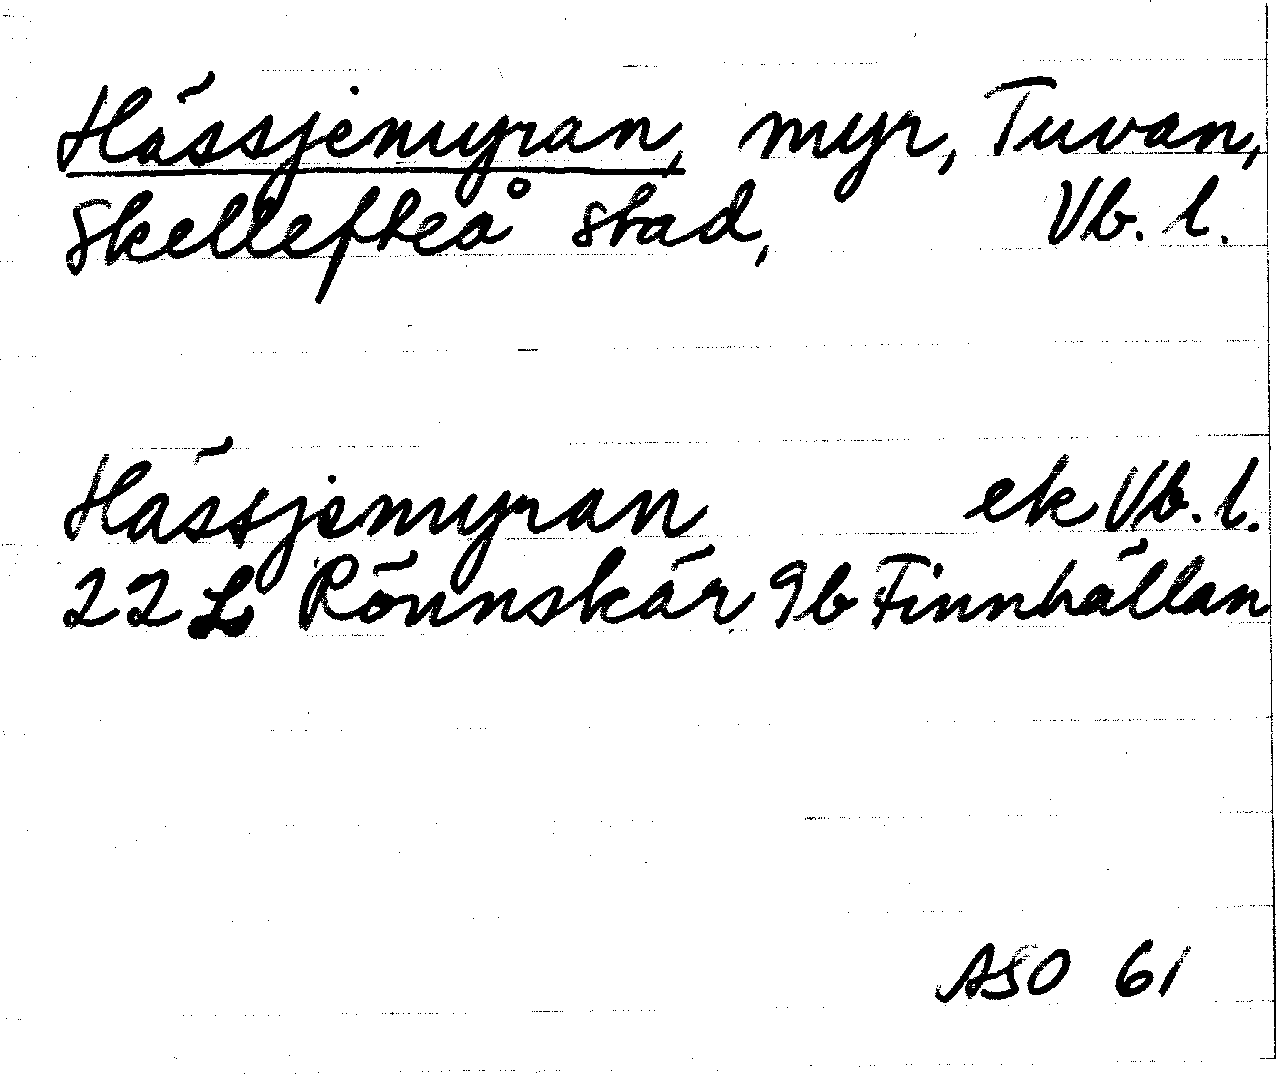 Hässjemyran, myr, Tuvan,
Skellefteå stad, Vb. l.
Hässjemyran ek Vb. l.
22 L Rönnskär 9b Finnhällan
ASO 61